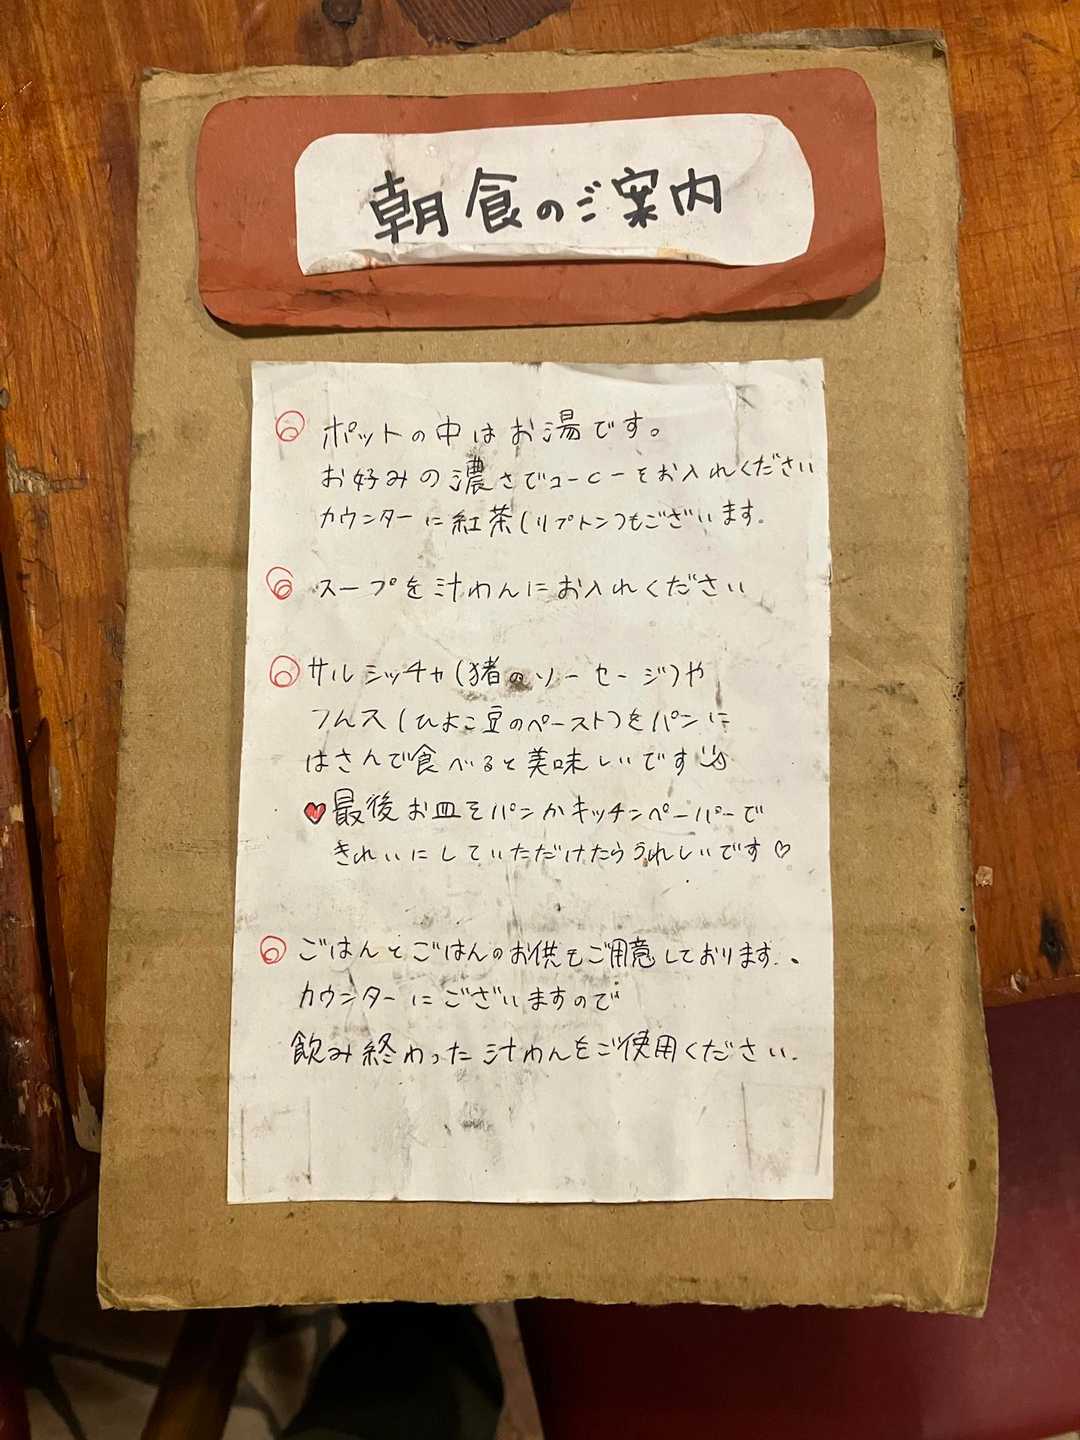 朝食のご案内
ポットの中はお湯です。
お好みの濃さでコーヒーをお入れください
カウンターに紅茶(リプトン)もございます.
スープを汁わんにお入れください
サルシッチャ(猪のソーセージ)や
フムス(ひよこ豆のペースト)をパンに
はさんで食べると美味しいです
♥最後お皿をパンかキッチンペーパーで
きれいにしていただけたらうれしいです♡
ごはんとごはんのお供もご用意しております.
カウンターにございますので
飲み終わった汁わんをご使用ください.